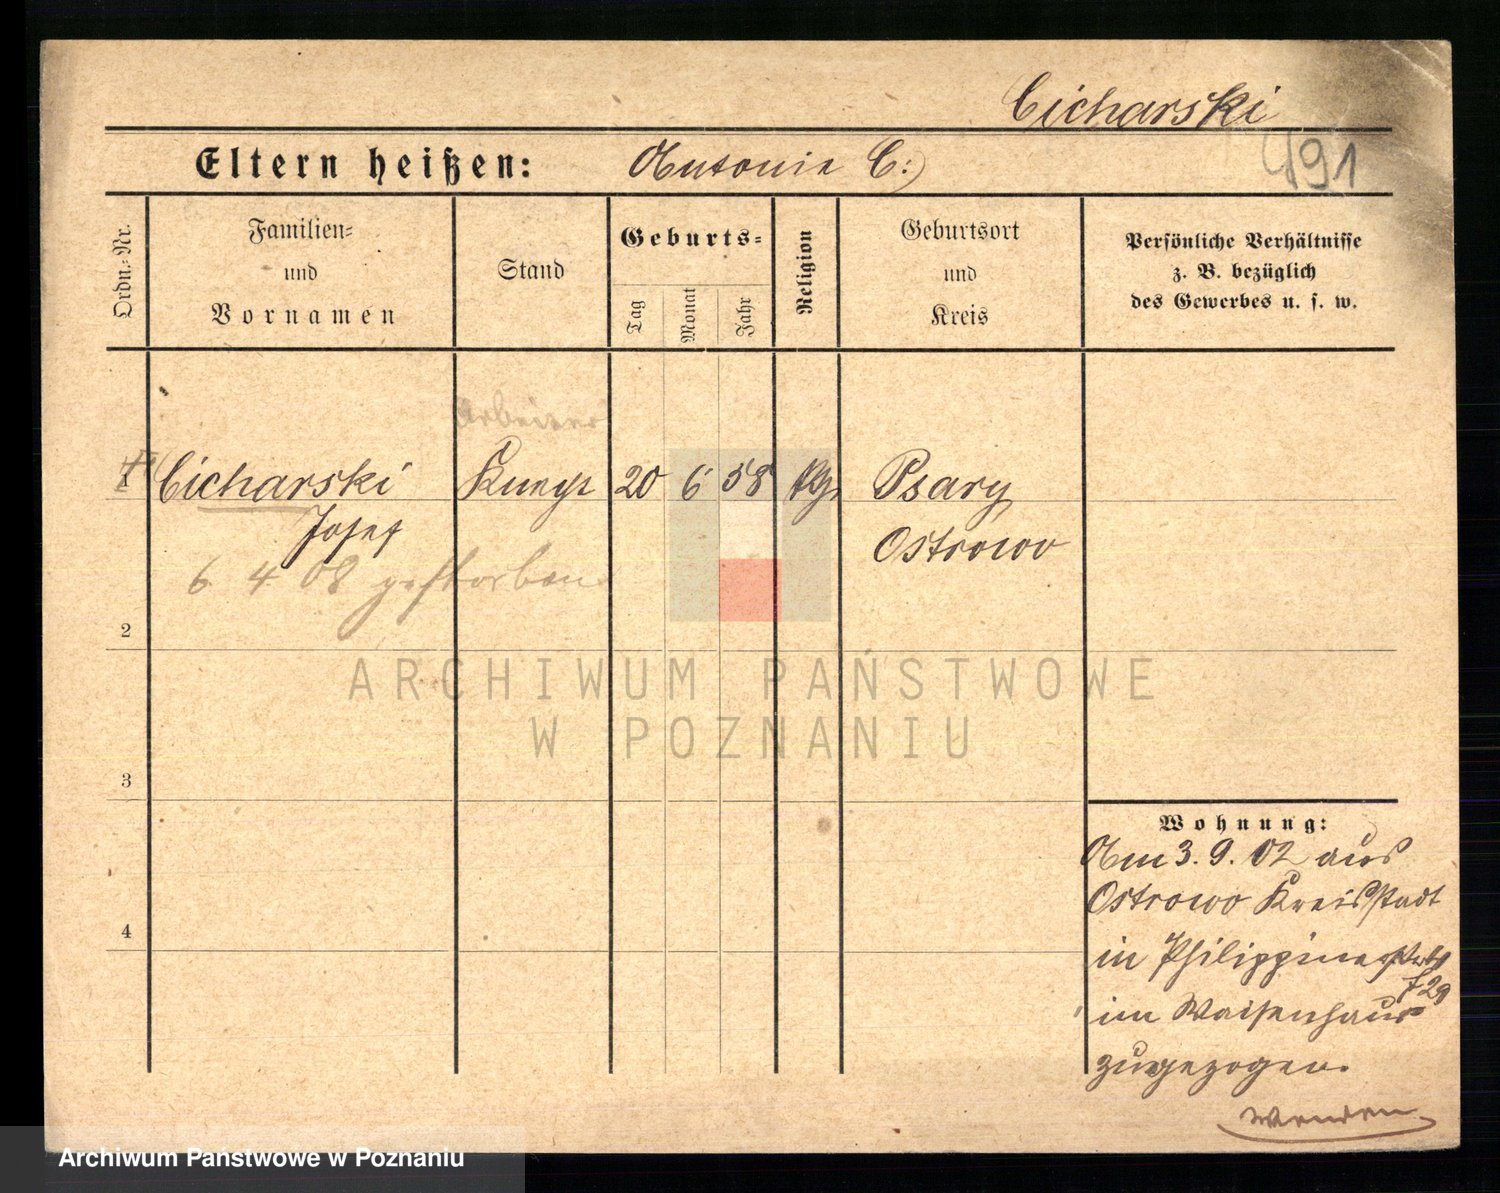 Cicharski
491
Eltern heißen: Antonie C:)
Ordn.=Nr.
Familien=
und
Vornamen
Stand
Geburts=
Tag
Monat
Jahr
Religion
Geburtsort
und
Kreis
Persönliche Verhältnisse
z. B. bezüglich
des Gewerbes u. s. w.
Arbeiter
1 Cicharski Knecht 20 6 58 Psary
Josef Ostrowo
6. 4. 08 gestorben
2
ARCHIWUM PAŃSTWOWE
W POZNANIU
3
Wohnung:
Am 3. 9. 02 aus
Ostrowo Kreisstadt
4
in
29
im Waisenhaus
zugezogen.
Wenden
Archiwum Państwowe w Poznaniu